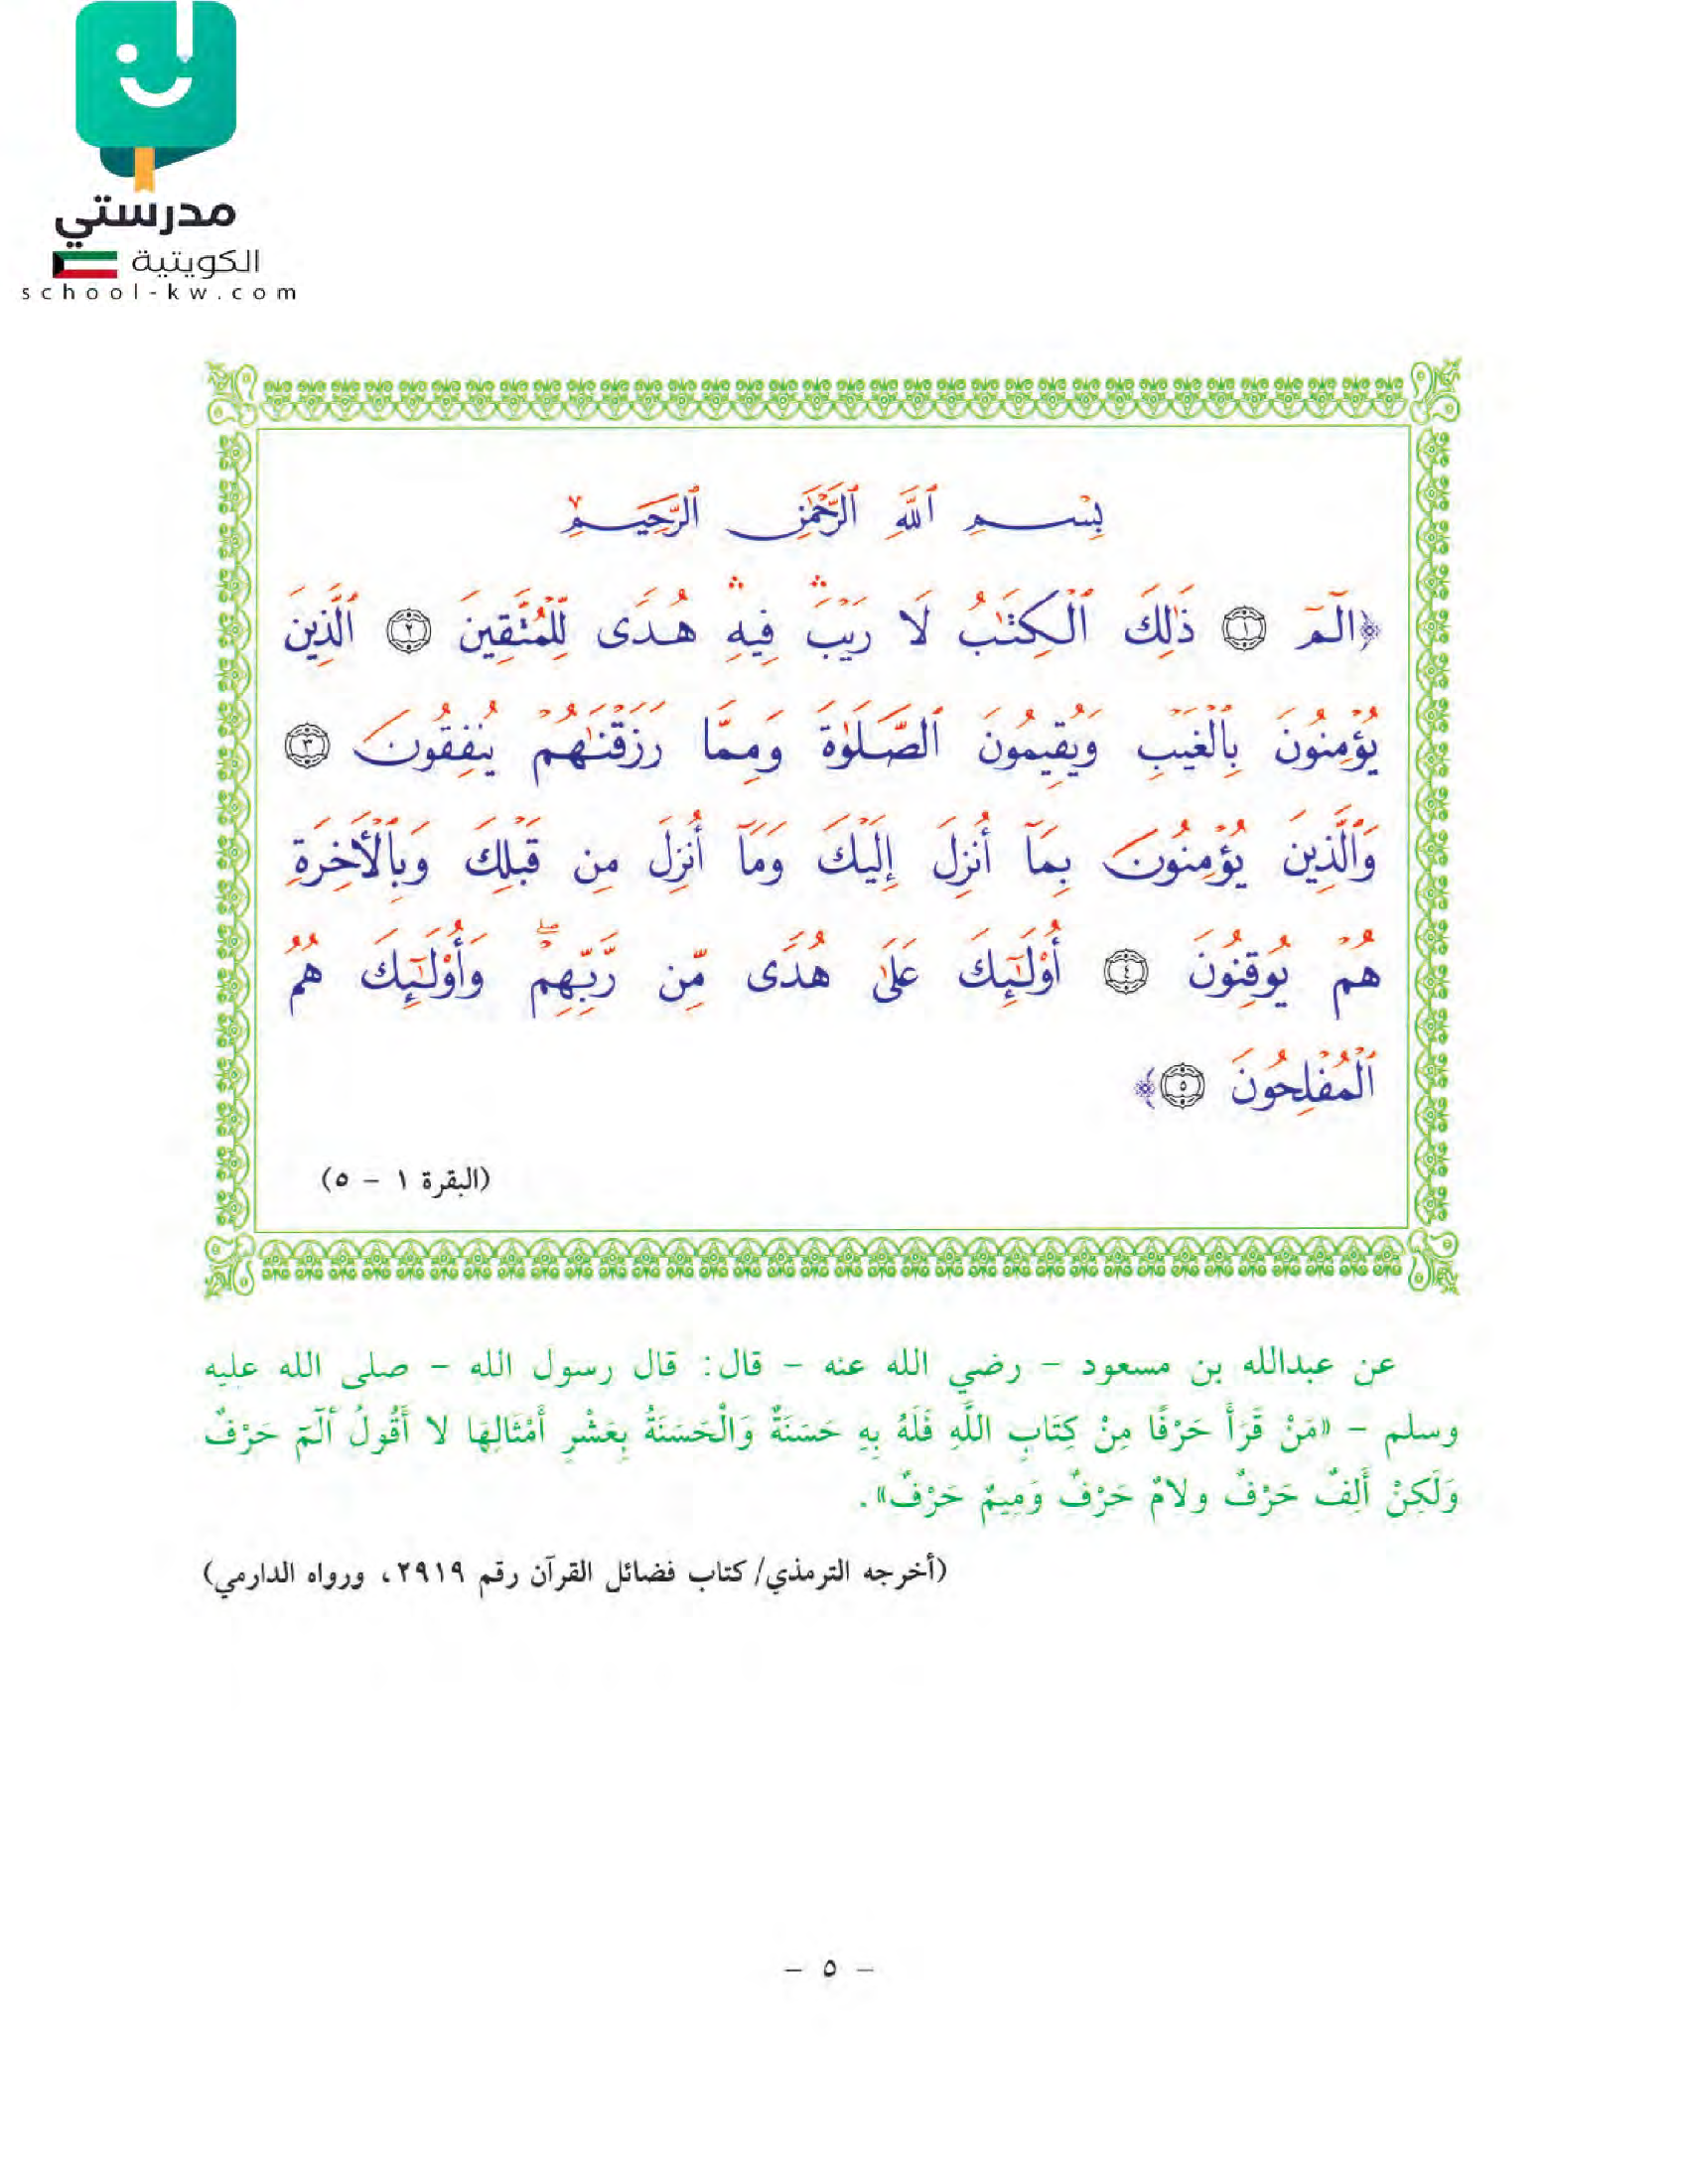 مدرستي
الكويتية
school-kw.com
بِسْمِ ٱللَّهِ ٱلرَّحْمَٰنِ ٱلرَّحِيمِ
﴿الٓمٓ ۝١ ذَٰلِكَ ٱلْكِتَٰبُ لَا رَيْبَۛ فِيهِۛ هُدًى لِّلْمُتَّقِينَ ۝٢ ٱلَّذِينَ
يُؤْمِنُونَ بِٱلْغَيْبِ وَيُقِيمُونَ ٱلصَّلَوٰةَ وَمِمَّا رَزَقْنَٰهُمْ يُنفِقُونَ ۝٣
وَٱلَّذِينَ يُؤْمِنُونَ بِمَآ أُنزِلَ إِلَيْكَ وَمَآ أُنزِلَ مِن قَبْلِكَ وَبِٱلْأَخِرَةِ
هُمْ يُوقِنُونَ ۝٤ أُوْلَٰٓئِكَ عَلَىٰ هُدًى مِّن رَّبِّهِمْۖ وَأُوْلَٰٓئِكَ هُمُ
ٱلْمُفْلِحُونَ ۝٥﴾
(البقرة ١ – ٥)
عن عبدالله بن مسعود – رضي الله عنه – قال: قال رسول الله – صلى الله عليه
وسلم – «مَنْ قَرَأَ حَرْفًا مِنْ كِتَابِ اللَّهِ فَلَهُ بِهِ حَسَنَةٌ وَالْحَسَنَةُ بِعَشْرِ أَمْثَالِهَا لا أَقُولُ ألَمَ حَرْفٌ
وَلَكِنْ أَلِفٌ حَرْفٌ ولامٌ حَرْفٌ وَمِيمٌ حَرْفٌ».
(أخرجه الترمذي/ كتاب فضائل القرآن رقم ٢٩١٩، ورواه الدارمي)
– ٥ –